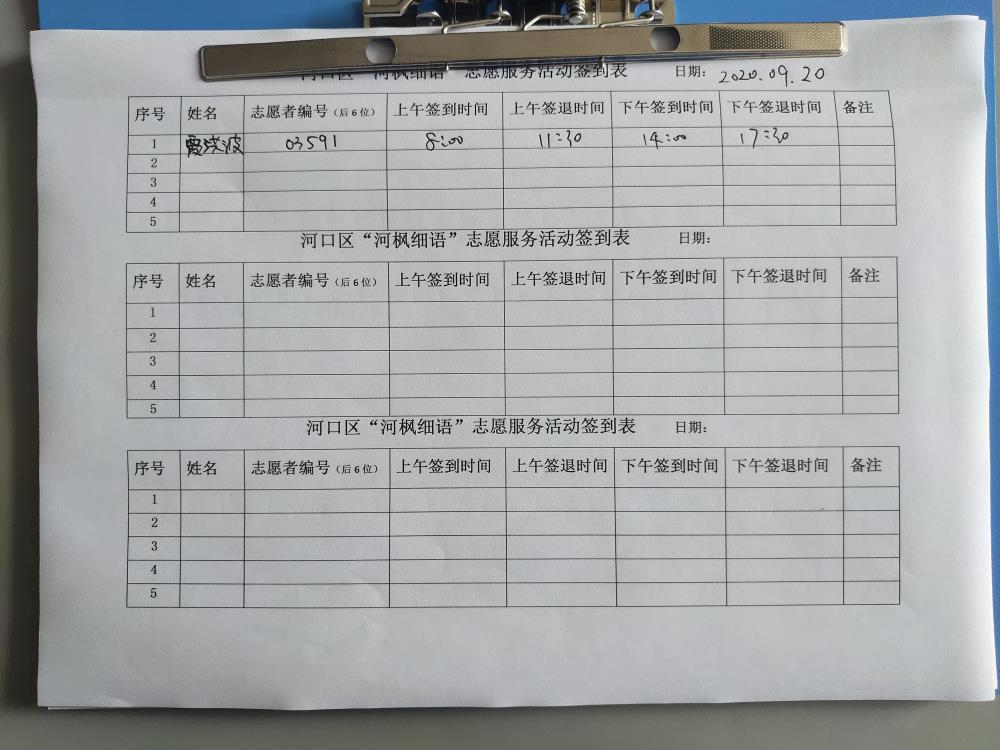 河口区“河枫细语”志愿服务活动签到表 日期: 2020.09.20
序号 姓名 志愿者编号（后6位） 上午签到时间 上午签退时间 下午签到时间 下午签退时间 备注
1 波 03591 8:00 11:30 14:00 17:30
2
3
4
5
河口区“河枫细语”志愿服务活动签到表 日期:
序号 姓名 志愿者编号（后6位） 上午签到时间 上午签退时间 下午签到时间 下午签退时间 备注
1
2
3
4
5
河口区“河枫细语”志愿服务活动签到表 日期:
序号 姓名 志愿者编号（后6位） 上午签到时间 上午签退时间 下午签到时间 下午签退时间 备注
1
2
3
4
5